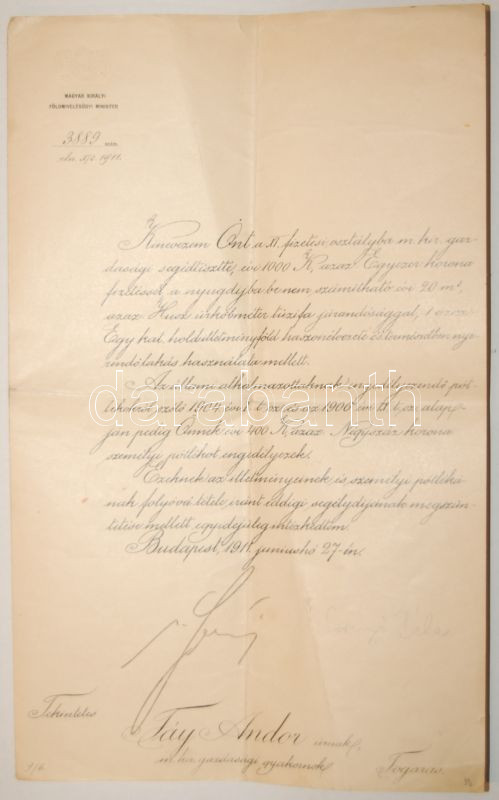 MAGYAR KIRÁLYI
FÖLDMIVELÉSÜGYI MINISTER.
3889 szám.
eln. 1911.
Kinevezem Önt a XI. fizetési osztályba m. kir. gaz-
dasági segédtisztté, évi 1000 K, azaz Egyezer korona
fizetéssel, a nyugdíjba be nem számítható évi 20 m³,
azaz Husz ürköbméter tüzifa járandósággal, 1 azaz
Egy kat. hold illetményföld haszonélvezete és természetben nyu-
jtandó lakás használata mellett.
Az állami alkalmazottaknak engedélyezendő pót-
lékokról szóló 1904. évi I. t. cz. és az 1906. évi t. cz. alap-
ján pedig Önnek évi 400 K, azaz Négyszáz korona
személyi pótlékot engedélyezek.
Ezeknek az illetményeinek és személyi pótléká-
nak folyóvá tétele iránt eddigi segélydíjának megszün-
tetése mellett, egyidejüleg intézkedtem.
Budapest, 1911. junius hó 27-én.
Tekintetes
Fáy Andor úrnak,
m. kir. gazdasági gyakornok
Fogaras.
darabanth